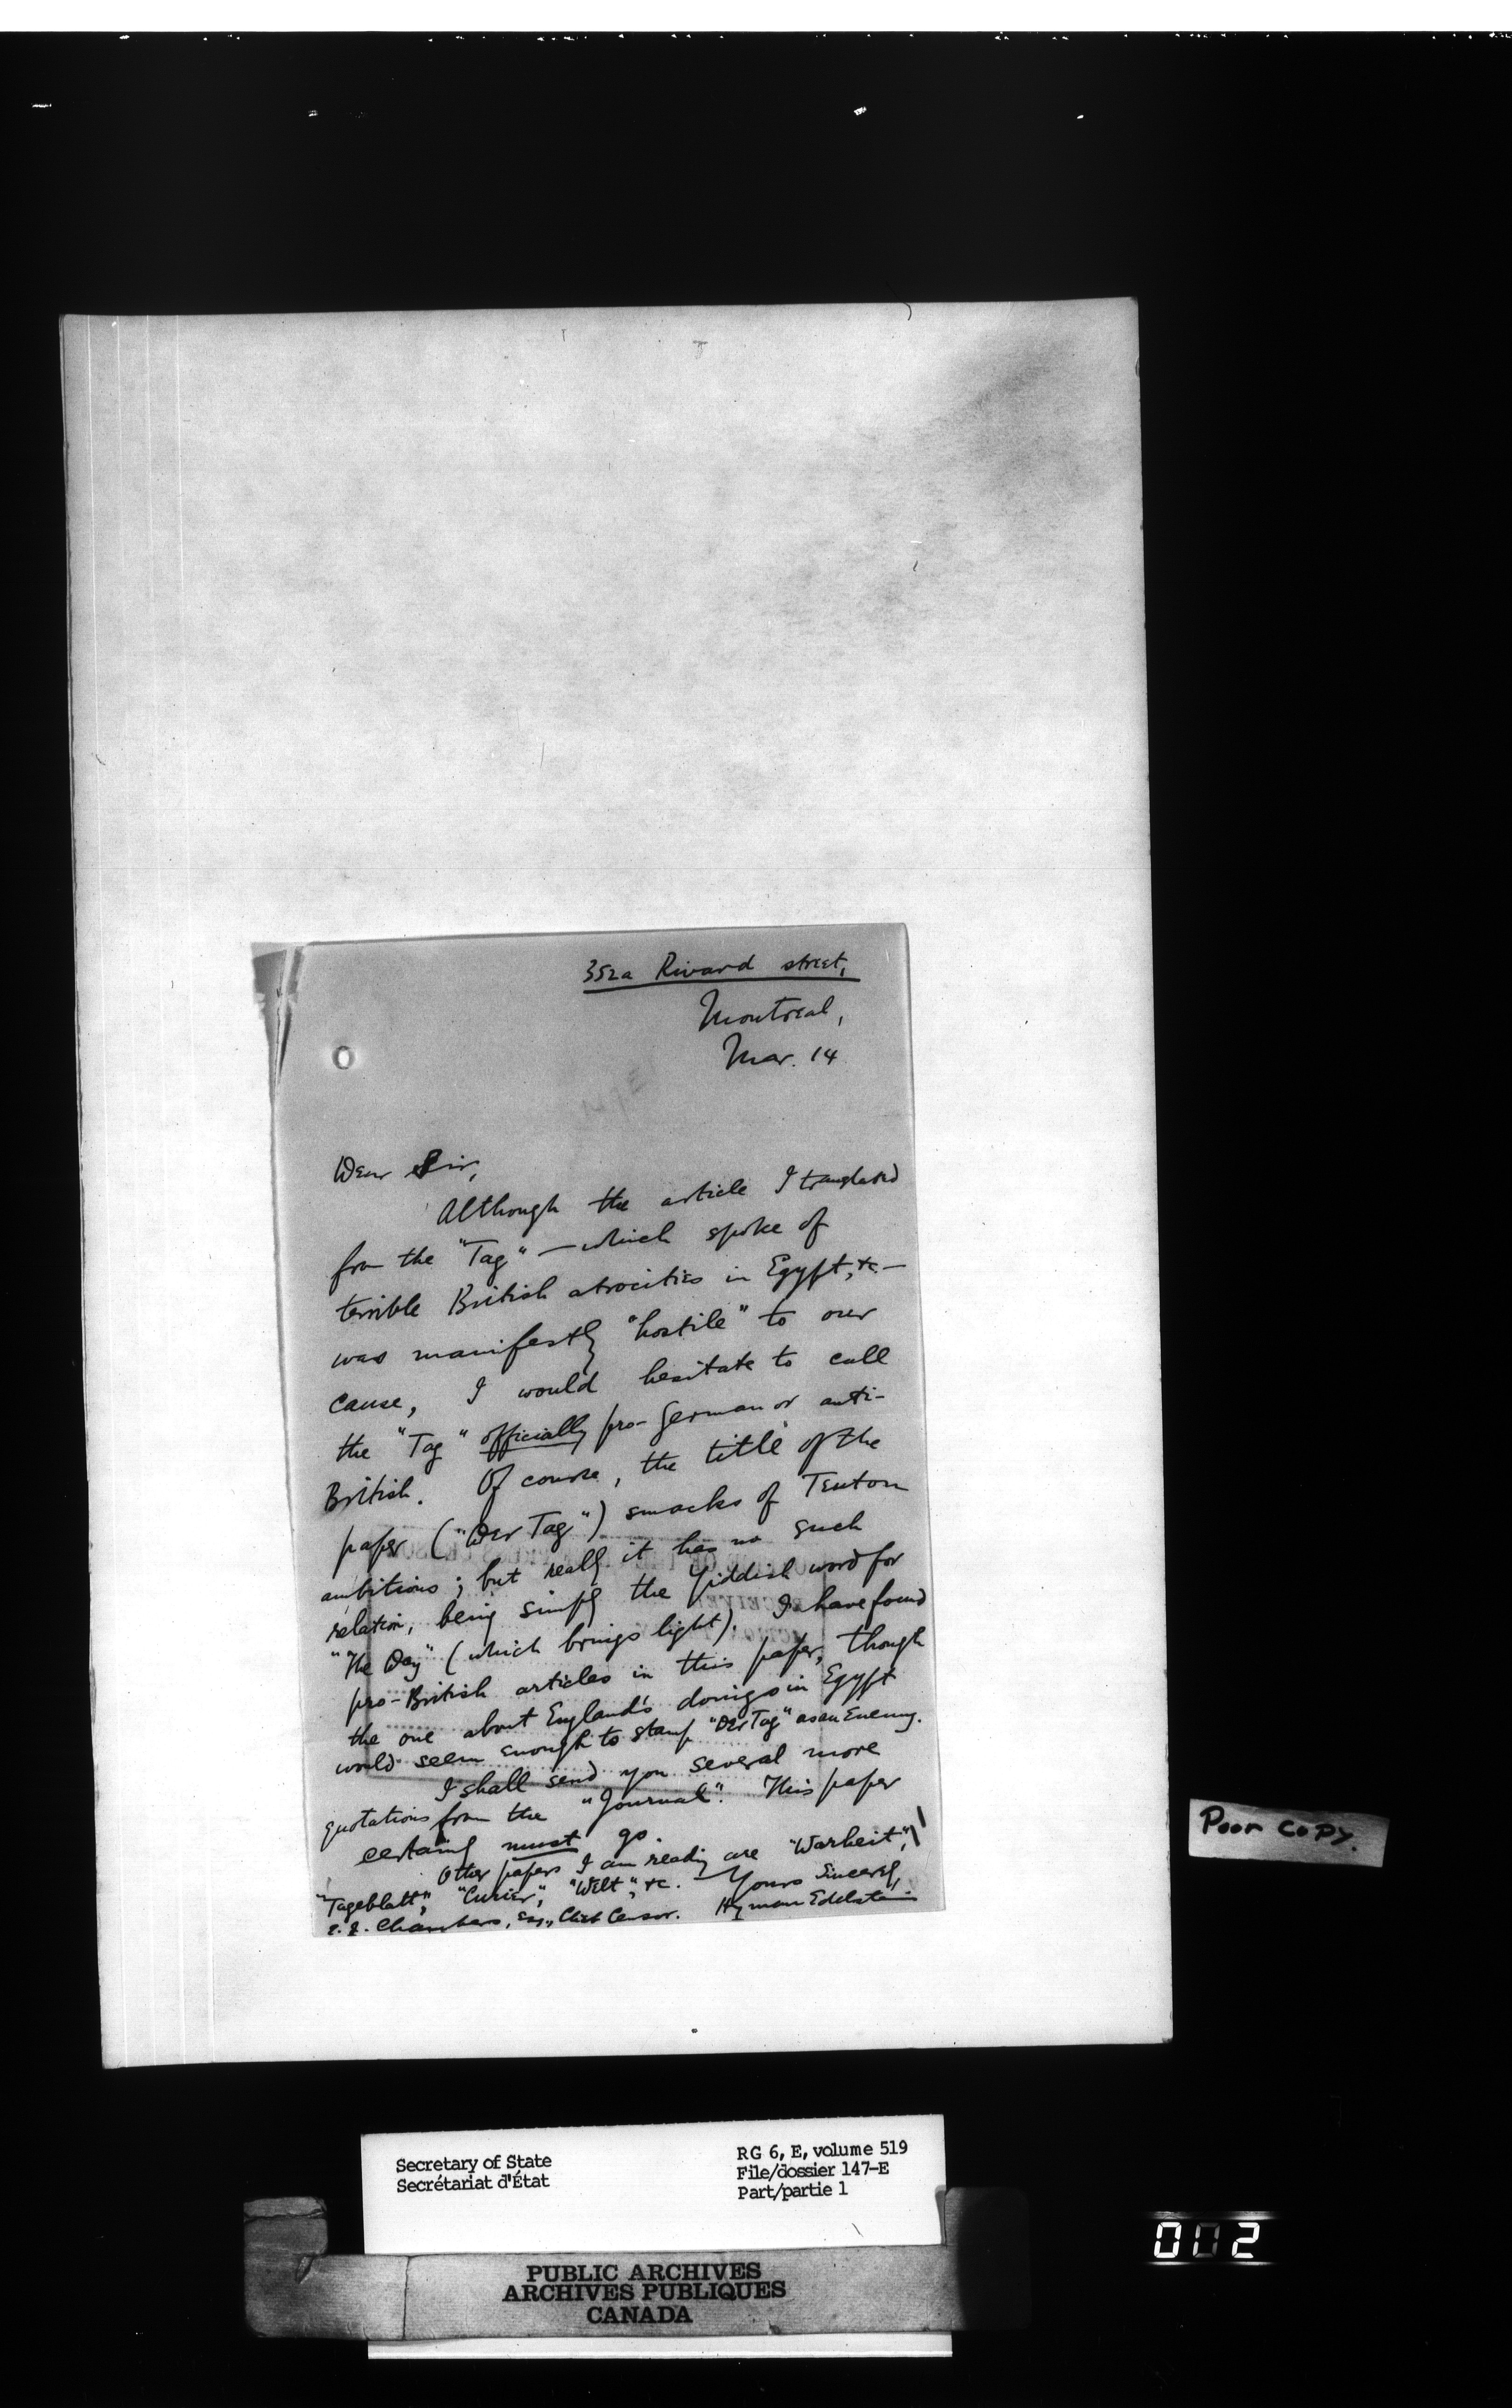 352a Rivard street,
Montreal,
Mar. 14
Dear Sir,
Although the article I translated
from the "Tag" — which spoke of
terrible British atrocities in Egypt, &c. —
was manifestly "hostile" to our
cause, I would hesitate to call
the "Tag" officially pro-German or anti-
British. Of course, the title of the
paper ("Der Tag") smacks of Teuton
ambitions; but really it has no such
relation, being simply the Yiddish word for
"The Day" (which brings light). I have found
pro-British articles in this paper, though
the one about England's doings in Egypt
would seem enough to stamp "Der Tag" as an Enemy.
I shall send you several more
quotations from the "Journal". This paper
certainly must go.
Other papers I am reading are "Warheit",
"Tageblatt", "Curier", "Welt", &c. — Yours Sincerely,
E. J. Chambers, Esq., Chief Censor. Hyman Edelstein
Poor copy.
Secretary of State
Secrétariat d'État
RG 6, E, volume 519
File/dossier 147-E
Part/partie 1
PUBLIC ARCHIVES
ARCHIVES PUBLIQUES
CANADA
002